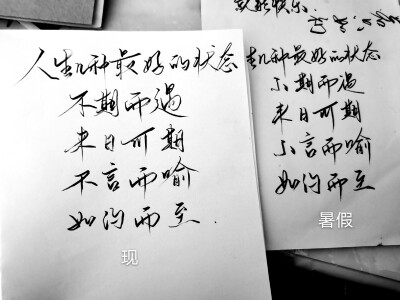 人生几种最好的状态
不期而遇
来日可期
不言而喻
如约而至.
现
快乐.
生几种最好的状态
不期而遇
来日可期
不言而喻
如约而至
暑假